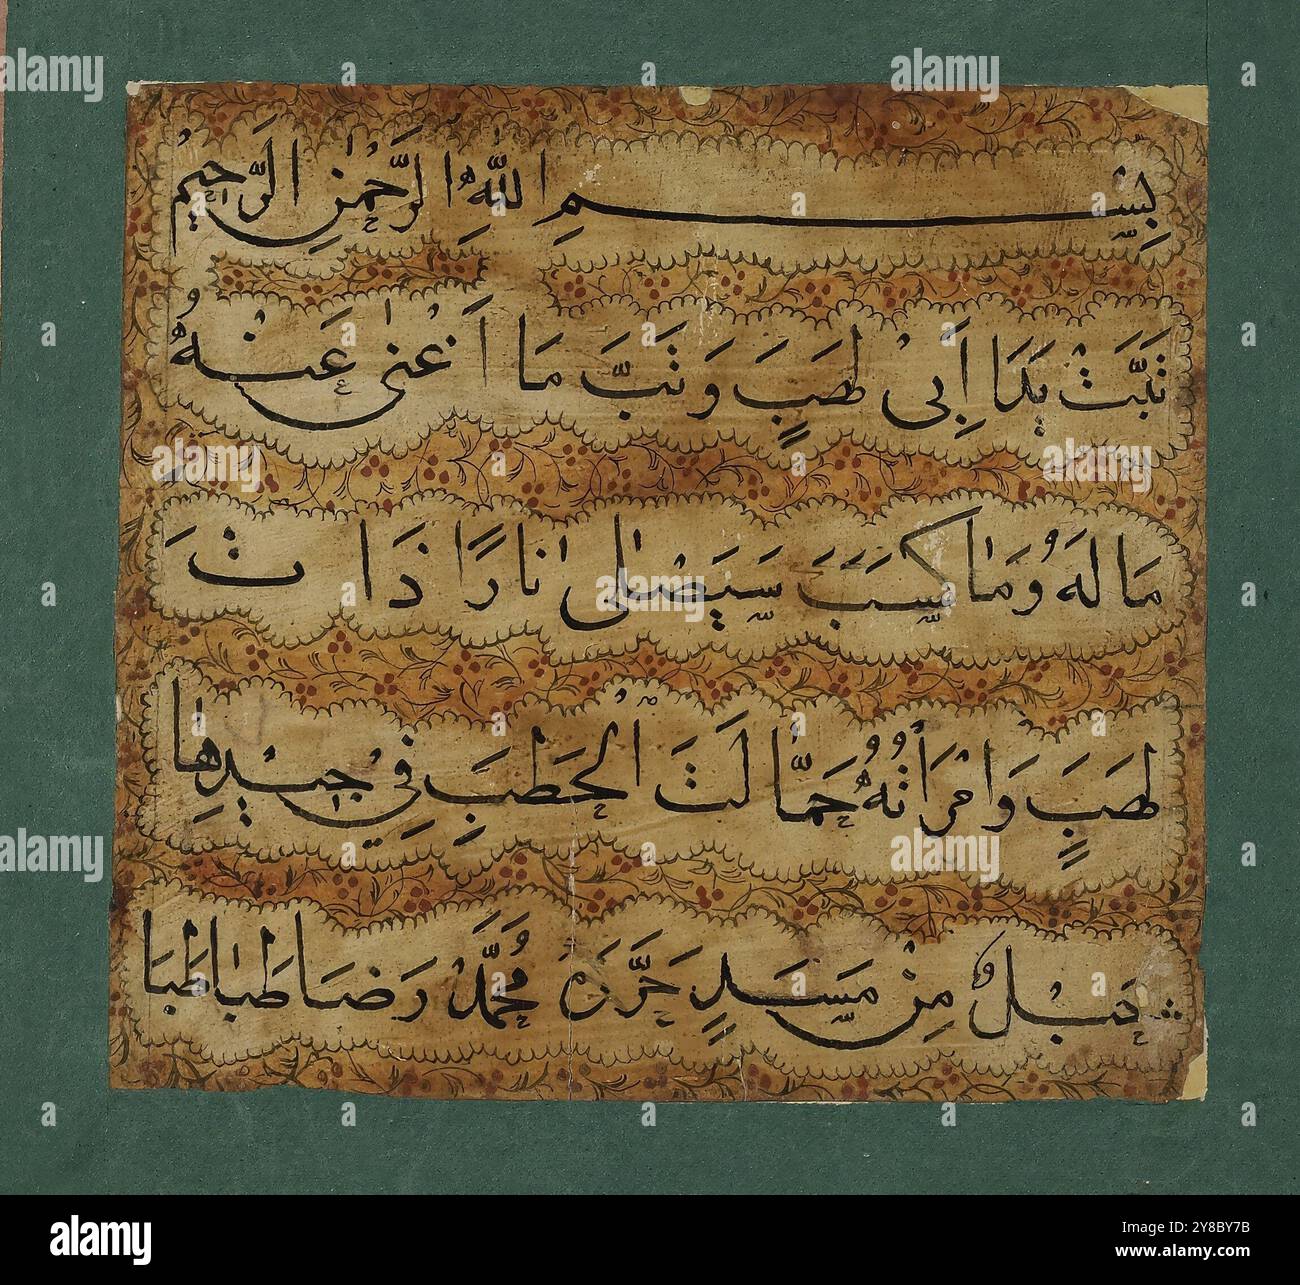 بِسْمِ اللّٰهِ الرَّحْمٰنِ الرَّحِيْمِ
تَبَّتْ يَدَا اَبِىْ لَهَبٍ وَتَبَّ مَا اَغْنٰى عَنْهُ
مَالَهُ وَمَا كَسَبَ سَيَصْلٰى نَارًا ذَاتَ
لَهَبٍ وَامْرَاَتُهُ حَمَّالَتَ الْحَطَبِ فِيْ جِيْدِهَا
حَبْلٌ مِنْ مَسَدٍ حَرَّرَهُ مُحَمَّدْ رَضَا طَبَاطَبَا
alamy
Image ID: 2Y8BY7B
www.alamy.com